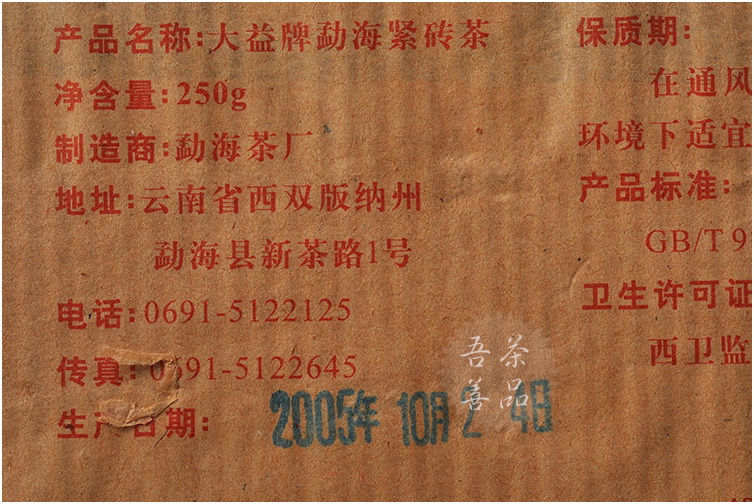 产品名称:大益牌勐海紧砖茶
净含量:250g
制造商:勐海茶厂
地址:云南省西双版纳州
勐海县新茶路1号
电话:0691-5122125
传真:0691-5122645
生产日期:2005年 10月2 4日
保质期:
在通风
环境下适宜
产品标准:
GB/T 9
卫生许可证
西卫监
吾茶
善品